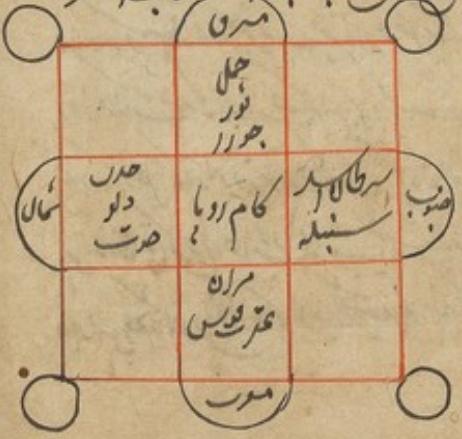 مشرق
حمل
ثور
جوزا
جنوب
سرطان اسد
سنبله
کام روپا
جدی
دلو
حوت
شمال
میزان
عقرب قوس
مغرب